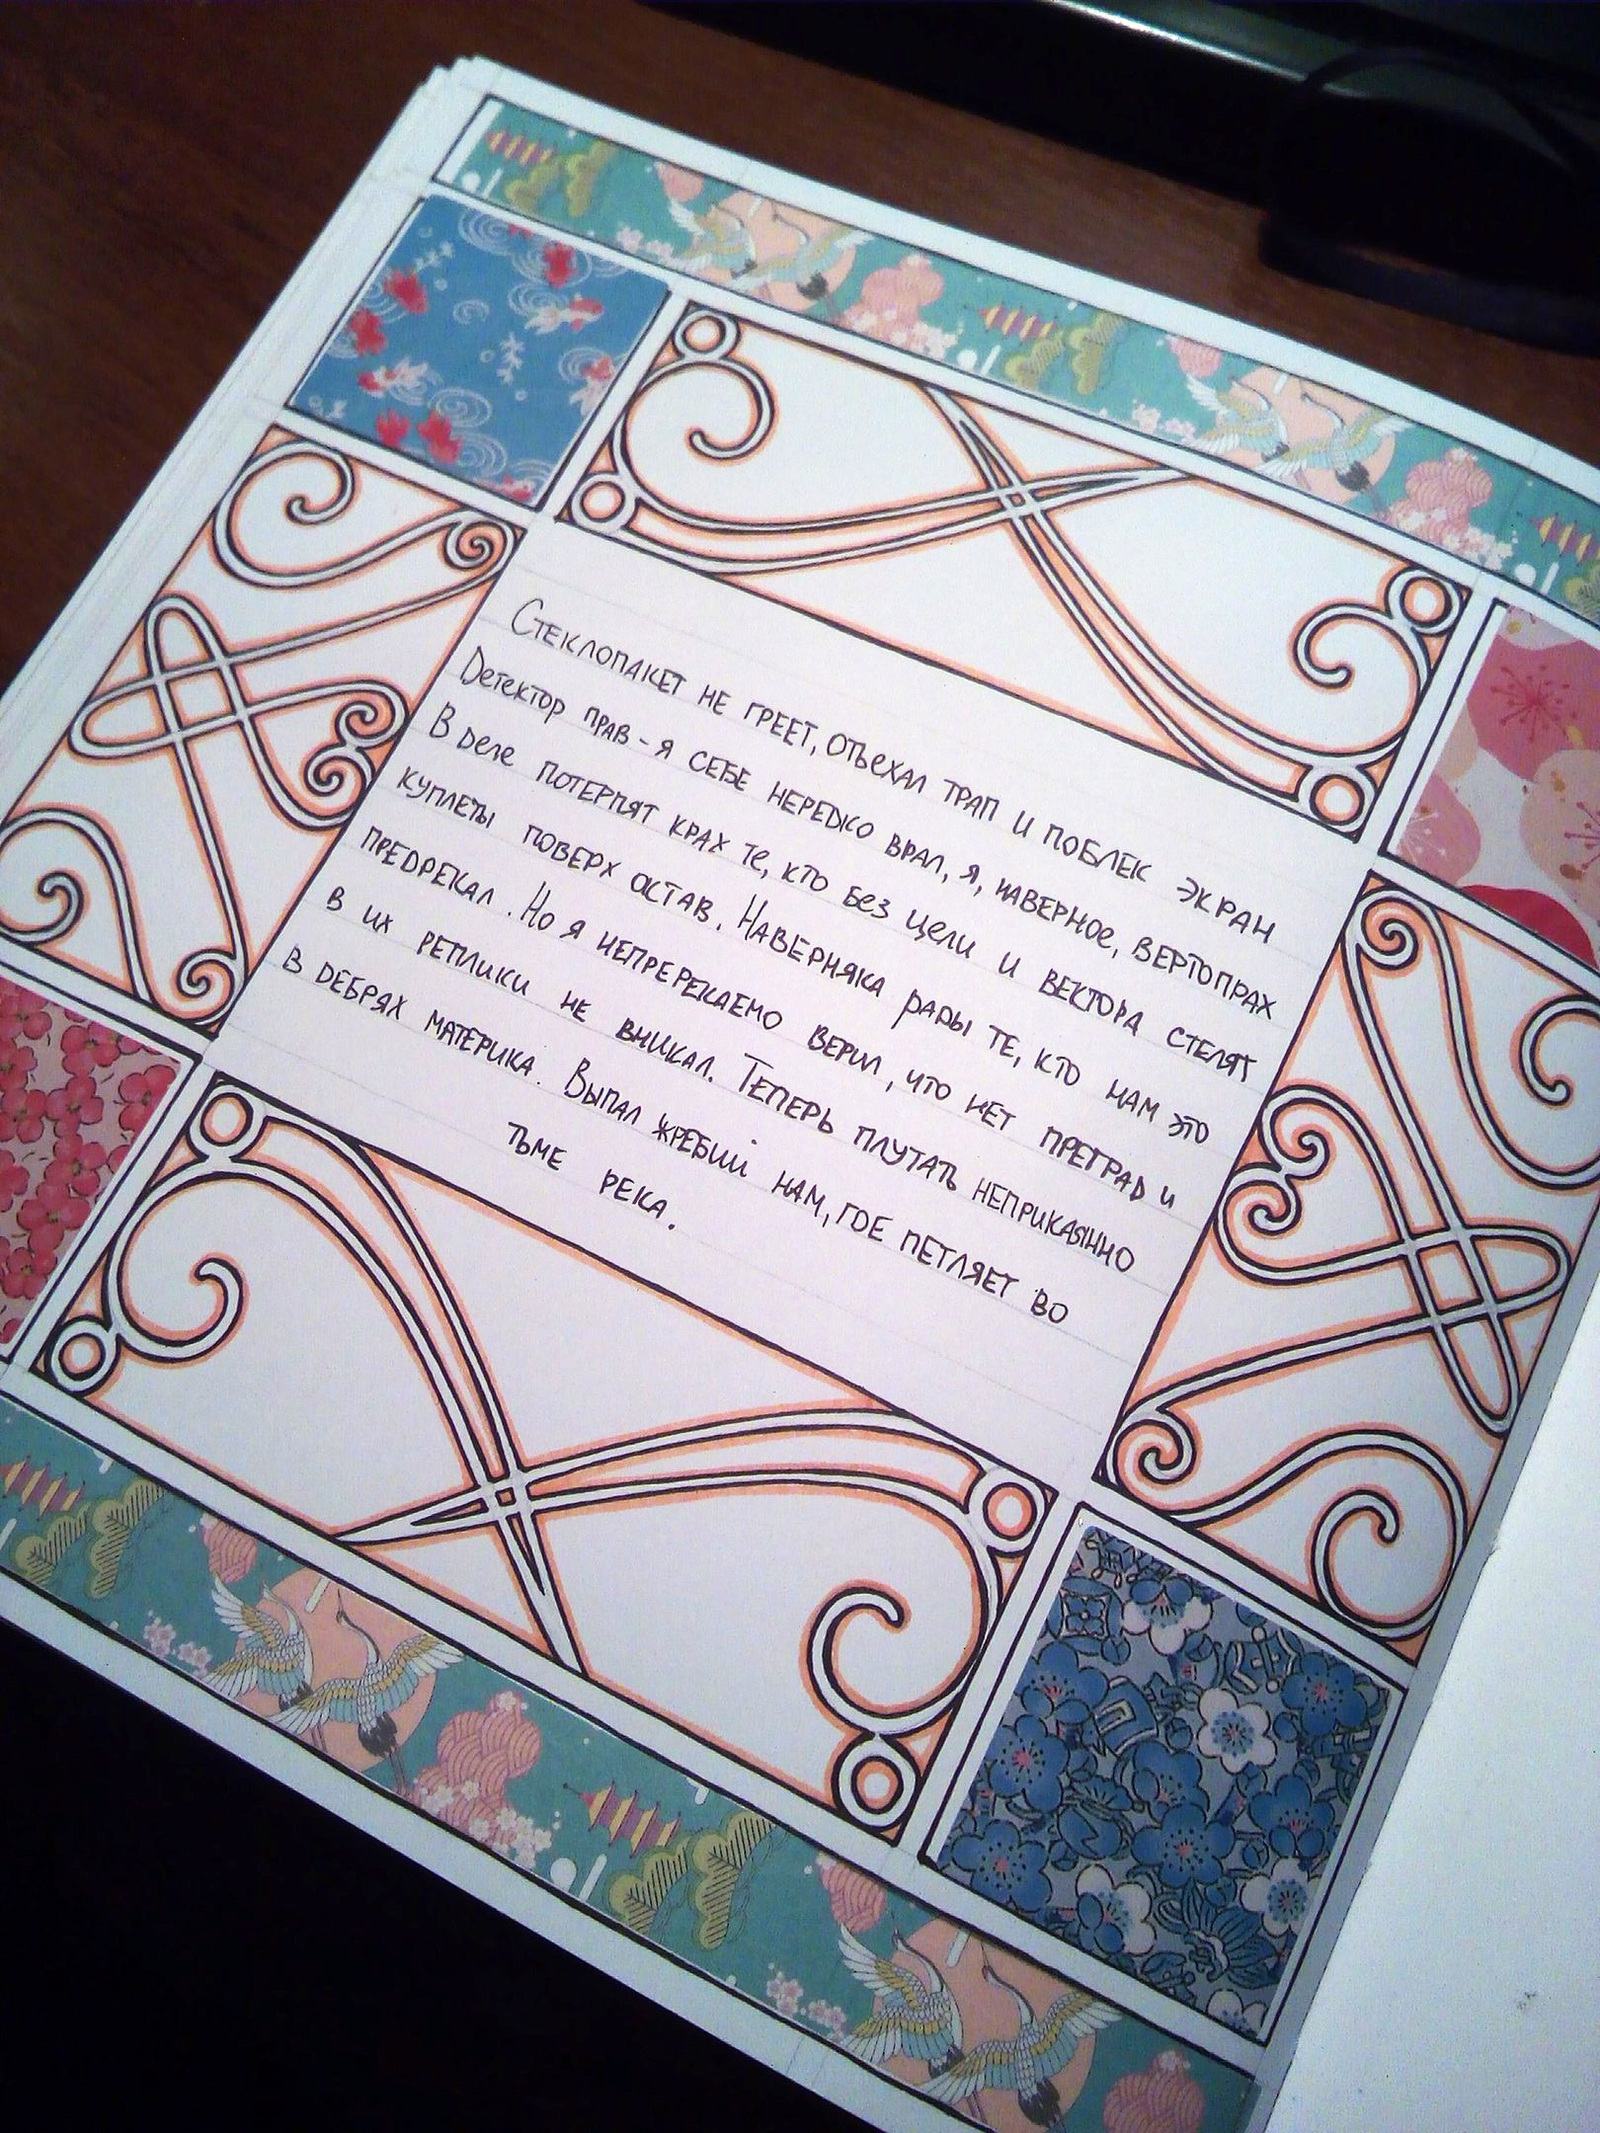 Стеклопакет не греет, отъехал трап и поблек экран
Детектор прав - я себе нередко врал, я, наверное, вертопрах
В деле потерпят крах те, кто без цели и вектора стелят
куплеты поверх октав. Наверняка рады те, кто нам это
предрекал. Но я непререкаемо верил, что нет преград и
в их реплики не вникал. Теперь плутать неприкаянно
в дебрях материка. Выпал жребий нам, где петляет во
тьме река.